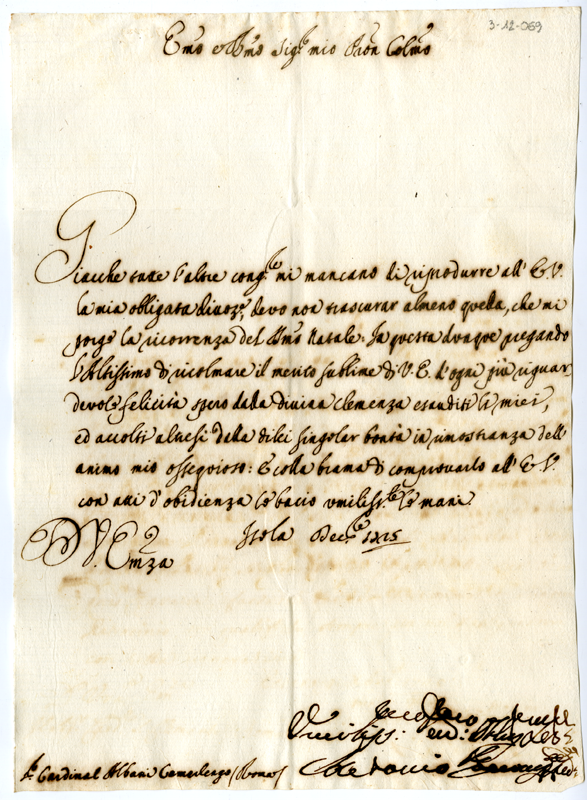 3-12-069
Emo e Rmo Sigre mio Pron Colmo
Giacche tutte l'altre congre mi mancano di riprodurre all' E.V.
la mia obligata divoze, devo non trascurar almeno quella, che mi
porge la ricorrenza del Smo Natale: In questa dunque pregando
l'Altissimo di ricolmare il merito sublime di V.E. d'ogni più riguar,
devole felicità spero dalla divina clemenza esauditi li miei,
ed accolti altresì dalla di lei singolar bontà in rimostranza dell'
animo mio ossequioso: E colla brama di comprovarlo all' E.V.
con atti d'obidienza le bacio umilisste le mani.
Isola Decre
D. V. Emza
Umiliss:
Sr Cardinal Albani Camerlengo / Roma /